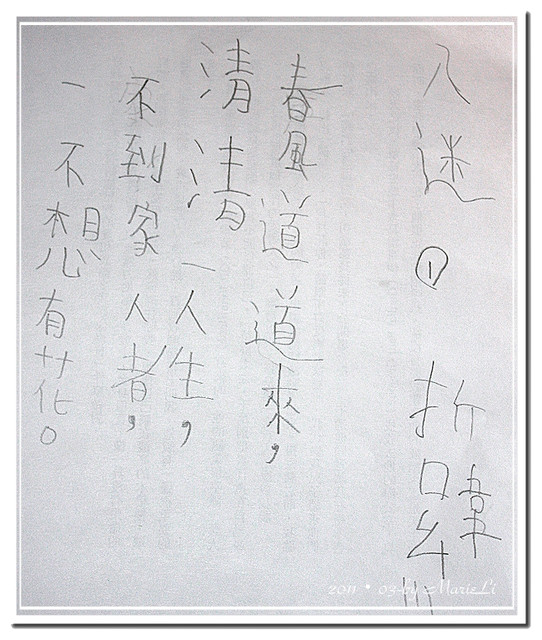 入迷 ① 折
春風道道來，
清清一人生，
不到家人者，
一不想有花。
2011 • 03-by MarieLi